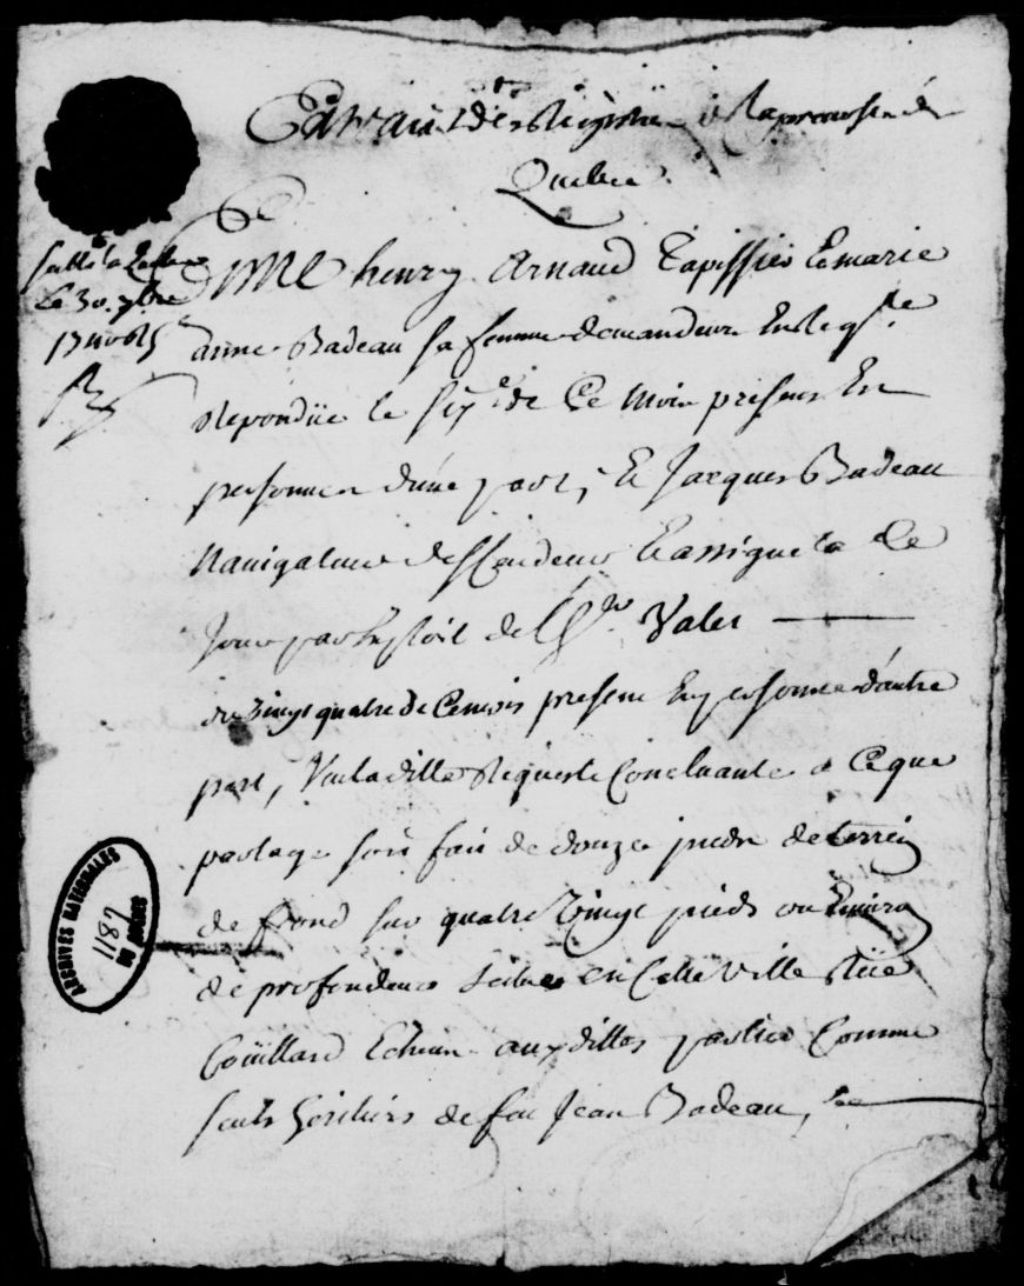 Extrait des Registres de la prevosté de
Quebec
Entre henry Arnaud Tapissier Et marie
anne Badeau sa femme demandeurs En Reqste
Repondüe le six.e de Ce mois presens En
personnes d'une part, Et Jacques Badeau
Navigateur deffendeur Et assigné a Ce
Jour par Exploit de
du Vingt quatre de Ce mois present En personne d'autre
part, Veu la ditte Requeste Concluante a Ce que
partage soit fait de douze pieds de terrein
de frond sur quatre Vingt pieds ou Environ
de profondeur scitues En Cette Ville Rüe
Coüillard Echeus auxdittes parties Comme
seuls heritiers de feu Jean Badeau,
scellé a Quebec
le 30. 7bre
ARCHIVES NATIONALES
1187
DU QUÉBEC